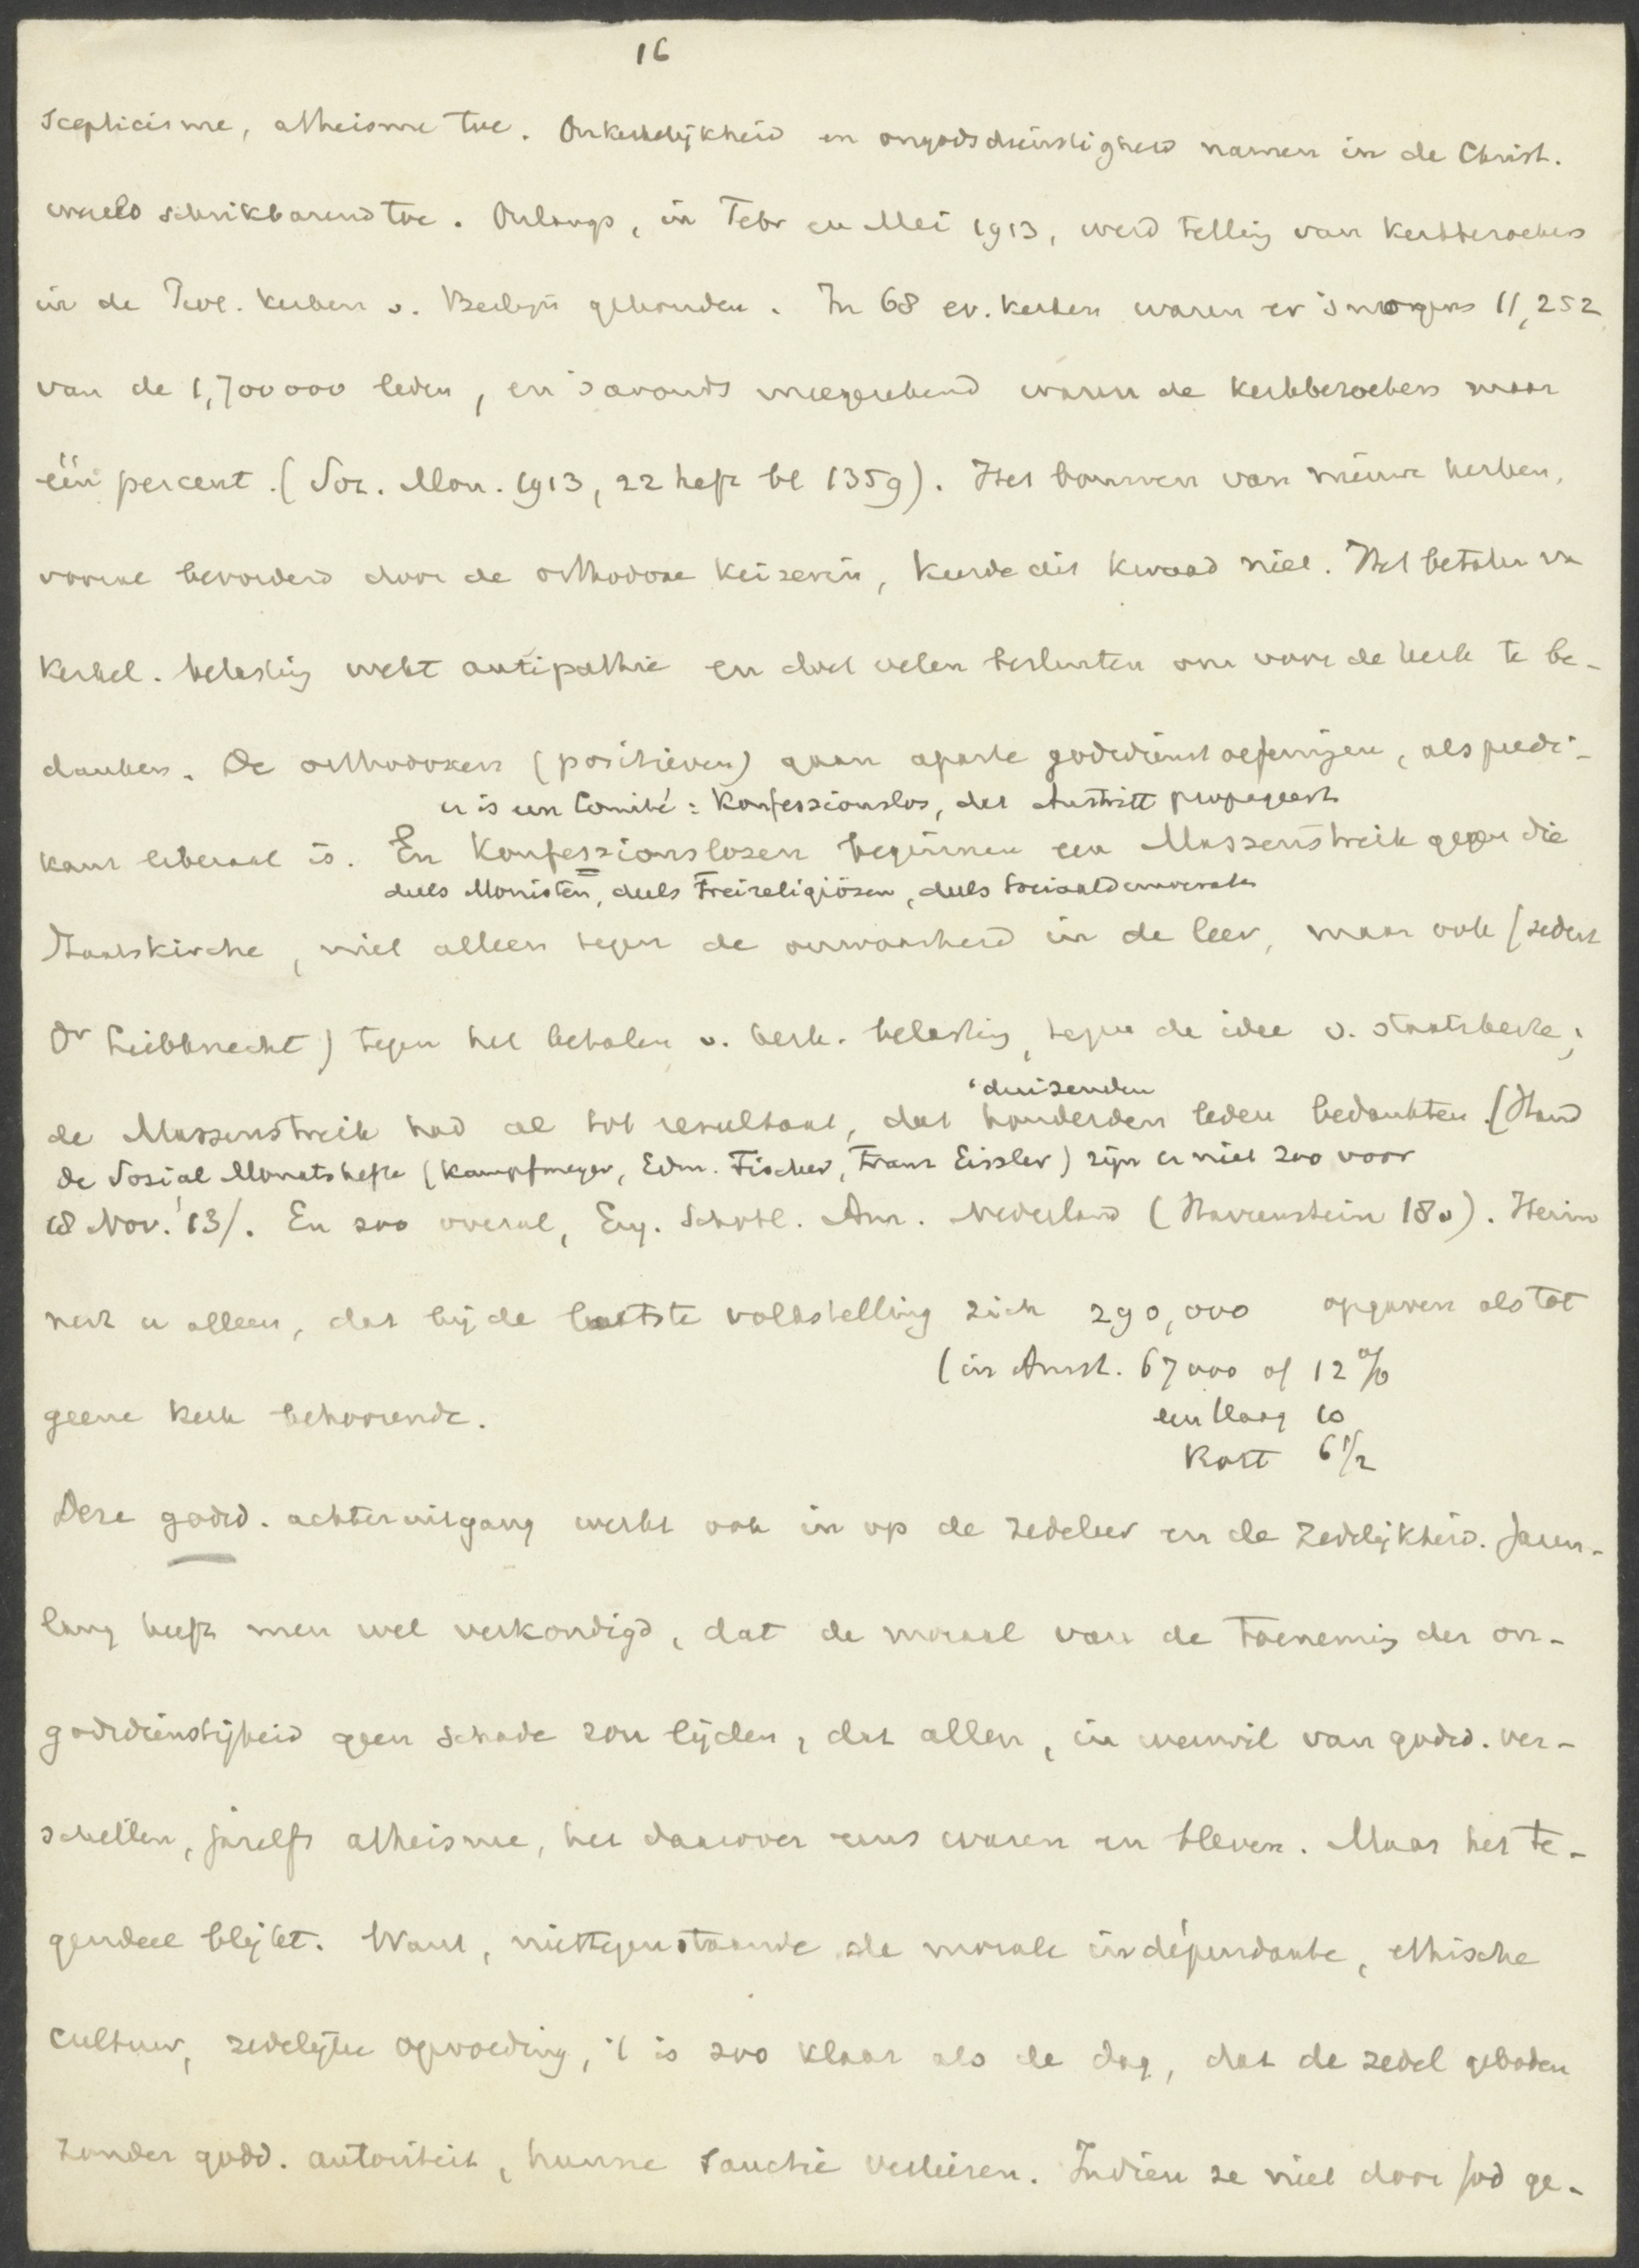 16
scepticisme, atheisme toe. Onkerkelijkheid en ongodsdienstigheid namen in de Christ.
wereld schrikbarend toe. Onlangs, in Febr en Mei 1913, werd telling van kerkbezoekers
in de Prot. kerken v. Berlijn gehouden. In 68 ev. kerken waren er 's morgens 11,252
van de 1,700000 leden, en 's avonds meegerekend waren de kerkbezoekers maar
één percent. (Soz. Mon. 1913, 22 heft bl 1359). Het bouwen van nieuwe kerken,
vooral bevorderd door de orthodoxe keizerin, keerde dit kwaad niet. Het betalen va
kerkel. belasting wekt antipathie en doet velen besluiten om voor de kerk te be-
danken. De orthodoxen (positieven) gaan aparte godsdienstoefeningen, als predi-
er is een Comité: Konfessionslos, dat Austritt propageert
kant liberaal is. En Konfessionslosen beginnen een Massenstreik gegen die
deels Monisten, deels Freireligiösen, deels Sociaaldemocraten
Staatskirche, niet alleen tegen de onwaarheid in de leer, maar ook (sedert
Dr Liebknecht) tegen het betalen v. kerk. belasting, tegen de idee v. staatskerk;
'duizenden
de Massenstreik had al tot resultaat, dat honderden leden bedankten. (Stand
de Sozial Monatshefte (Kampfmeyer, Edm. Fischer, Franz Eissler) zijn er niet zoo voor
18 Nov. '13/. En zoo overal, Eng. Schotl. Am. Nederland (Havenstein 180). Herin
nert u alleen, dat bij de laatste volkstelling zich 290,000 opgaven als tot
(in Amst. 67000 of 12 %
geene kerk behoorende.
en Haag 10
Rott 6 1/2
Deze godsd. achteruitgang werkt ook in op de zedeleer en de zedelijkheid. Jaren-
lang heeft men wel verkondigd, dat de moraal van de toeneming der on-
godsdienstigheid geen schade zou lijden, dat allen, in weerwil van godsd. ver-
schillen, ja zelfs atheisme, het daarover eens waren en bleven. Maar het te-
gendeel blijkt. Want, niettegenstaande de morale indépendante, ethische
cultuur, zedelijke opvoeding, 't is zoo klaar als de dag, dat de zedel geboden
zonder godd. autoriteit, hunne sanctie verliezen. Indien ze niet door God ge-